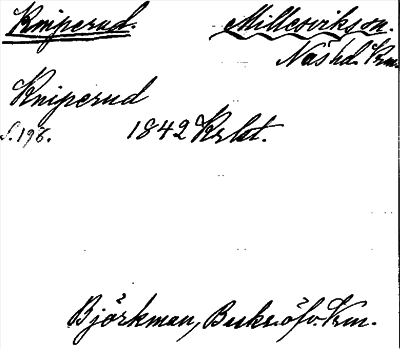 Kniperud. Millesvikssn.
Näshd. Krm.
Kniperud
S. 198. 1842 Krbt.
Björkman, Beskr. öfv. Vrm.